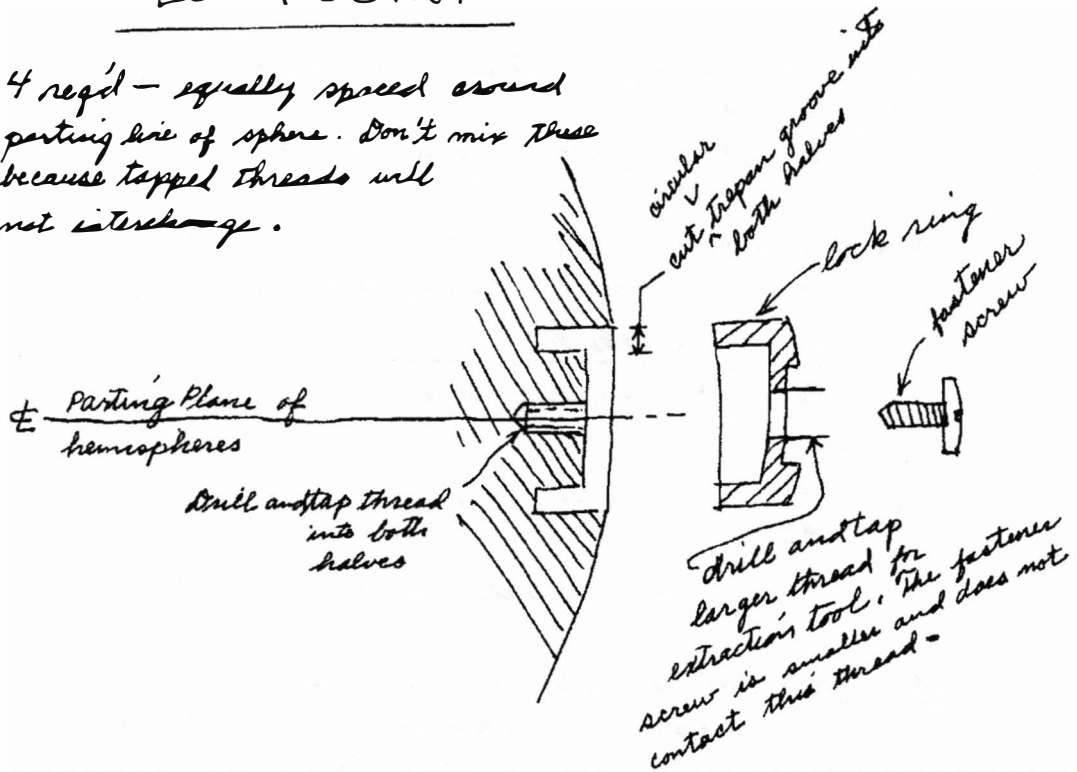 4 req'd — equally spaced around
parting line of sphere. Don't mix these
because tapped threads will
not interchange.
circular
cut trepan groove into
both halves
lock ring
fastener
screw
℄ Parting Plane of
hemispheres
Drill and tap thread
into both
halves
drill and tap
larger thread for
extraction tool. The fastener
screw is smaller and does not
contact this thread -